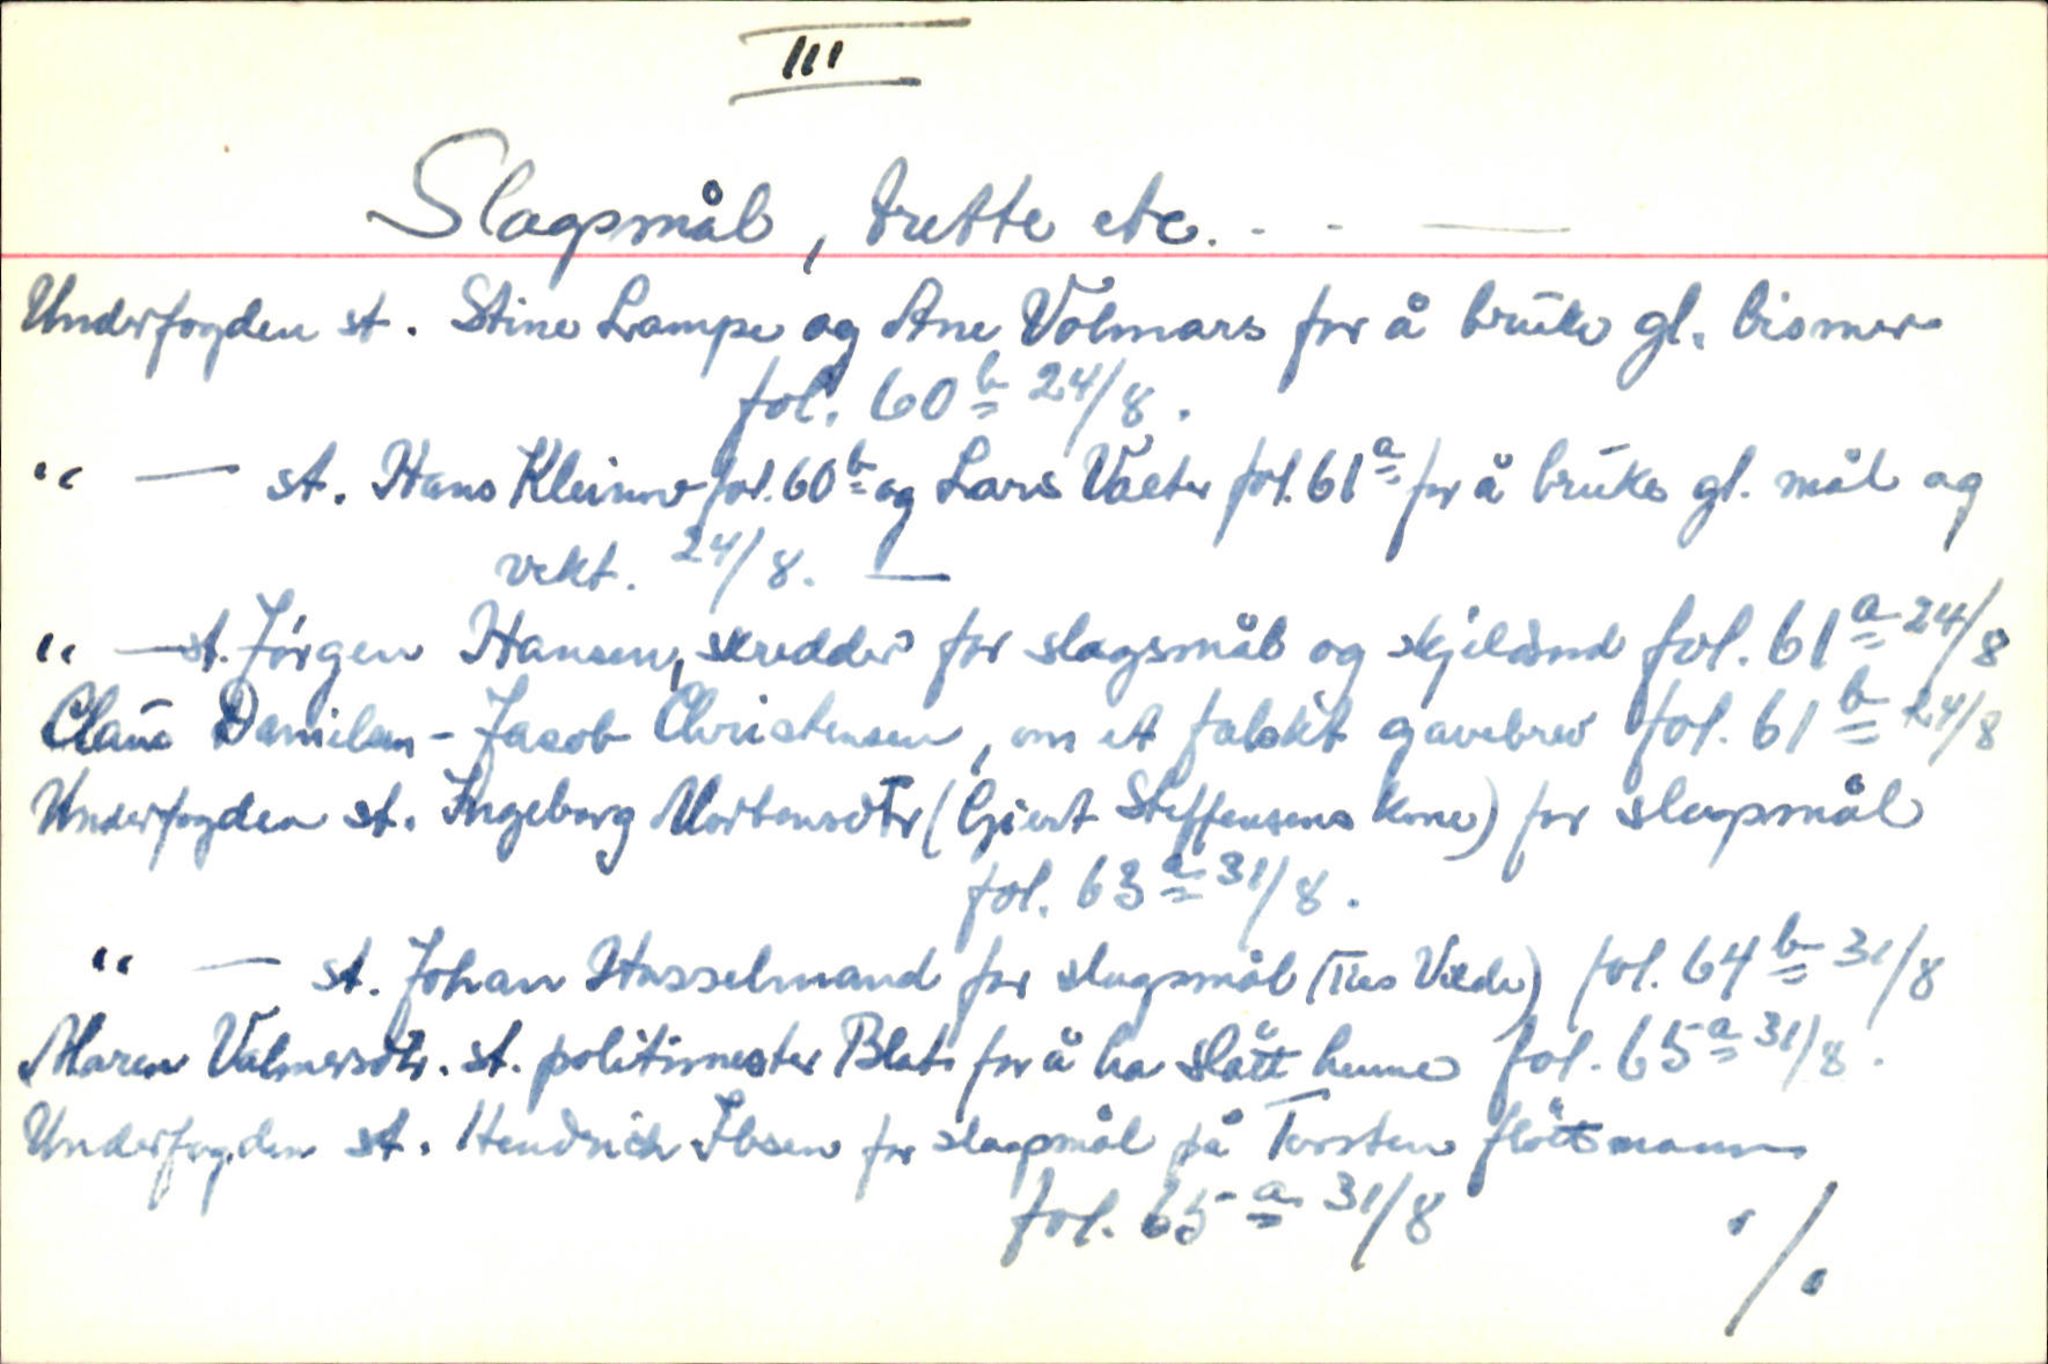 III
Slagsmål, trette etc. . . —
Underfogden st. Stine Lampe og Ane Volmars for å bruke gl. bismer
fol. 60 b 24/8.
" — st. Hans Kleinov fol. 60 b og Lars Valter fol. 61 a for å bruke gl. mål og
vekt. 24/8. —
" — st. Jörgen Hansen, skredder for slagsmål og skjelsord fol. 61 a 24/8
Claus Danielsen - Jacob Christensen, om et falskt gavebrev fol. 61 b 24/8
Underfogden st. Ingeborg Mortensdtr (Giert Steffensens kone) for slagsmål
fol. 63 a 31/8.
" — st. Johan Hasselmand for slagsmål (Ties Vilde) fol. 64 b 31/8
Maren Valmersdtr. st. politimester Blat for å ha slått henne fol. 65 a 31/8.
Underfogden st. Hendrich Ibsen for slagsmål på Torsten flöttmann
fol. 65 a 31/8
./.